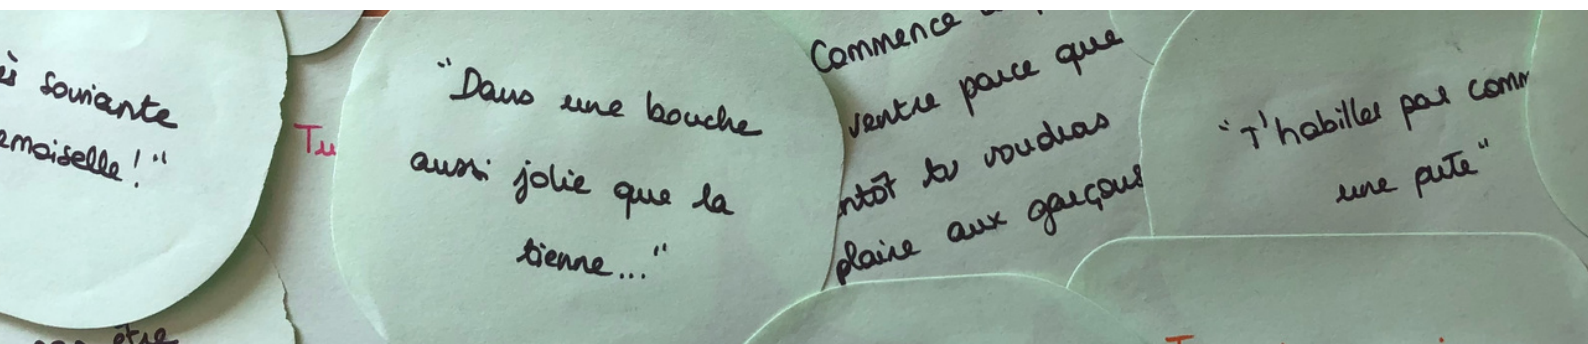 souriante
"Dans une bouche
aussi jolie que la
tienne..."
Tu
Commence
ventre parce que
tu voudras
plaire aux garçons
"T'habilles pas comm
une pute"
être